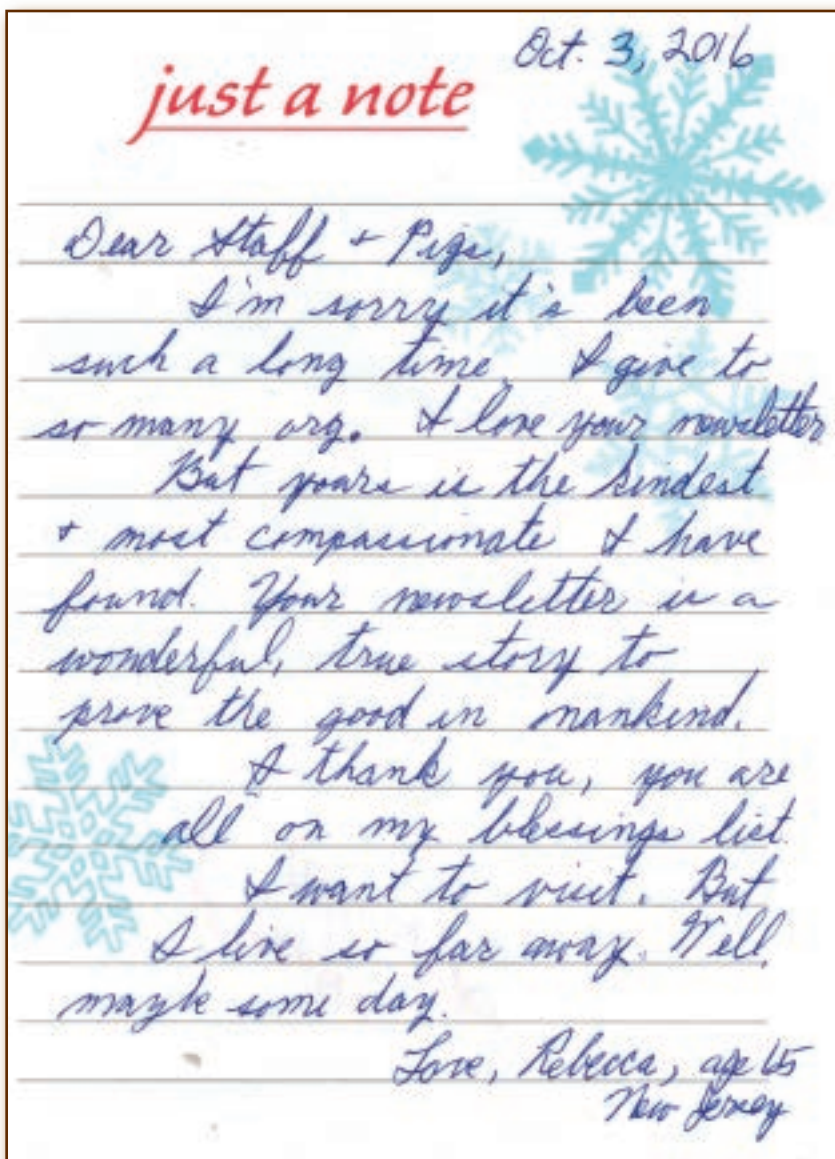 Oct. 3, 2016
just a note
Dear Staff + Pigs,
I'm sorry it's been
such a long time. I give to
so many org. I love your newsletter
But yours is the kindest
+ most compassionate I have
found. Your newsletter is a
wonderful, true story to
prove the good in mankind.
I thank you, you are
all on my blessings list.
I want to visit. But
I live so far away. Well,
maybe some day.
Love, Rebecca, age 65
New Jersey